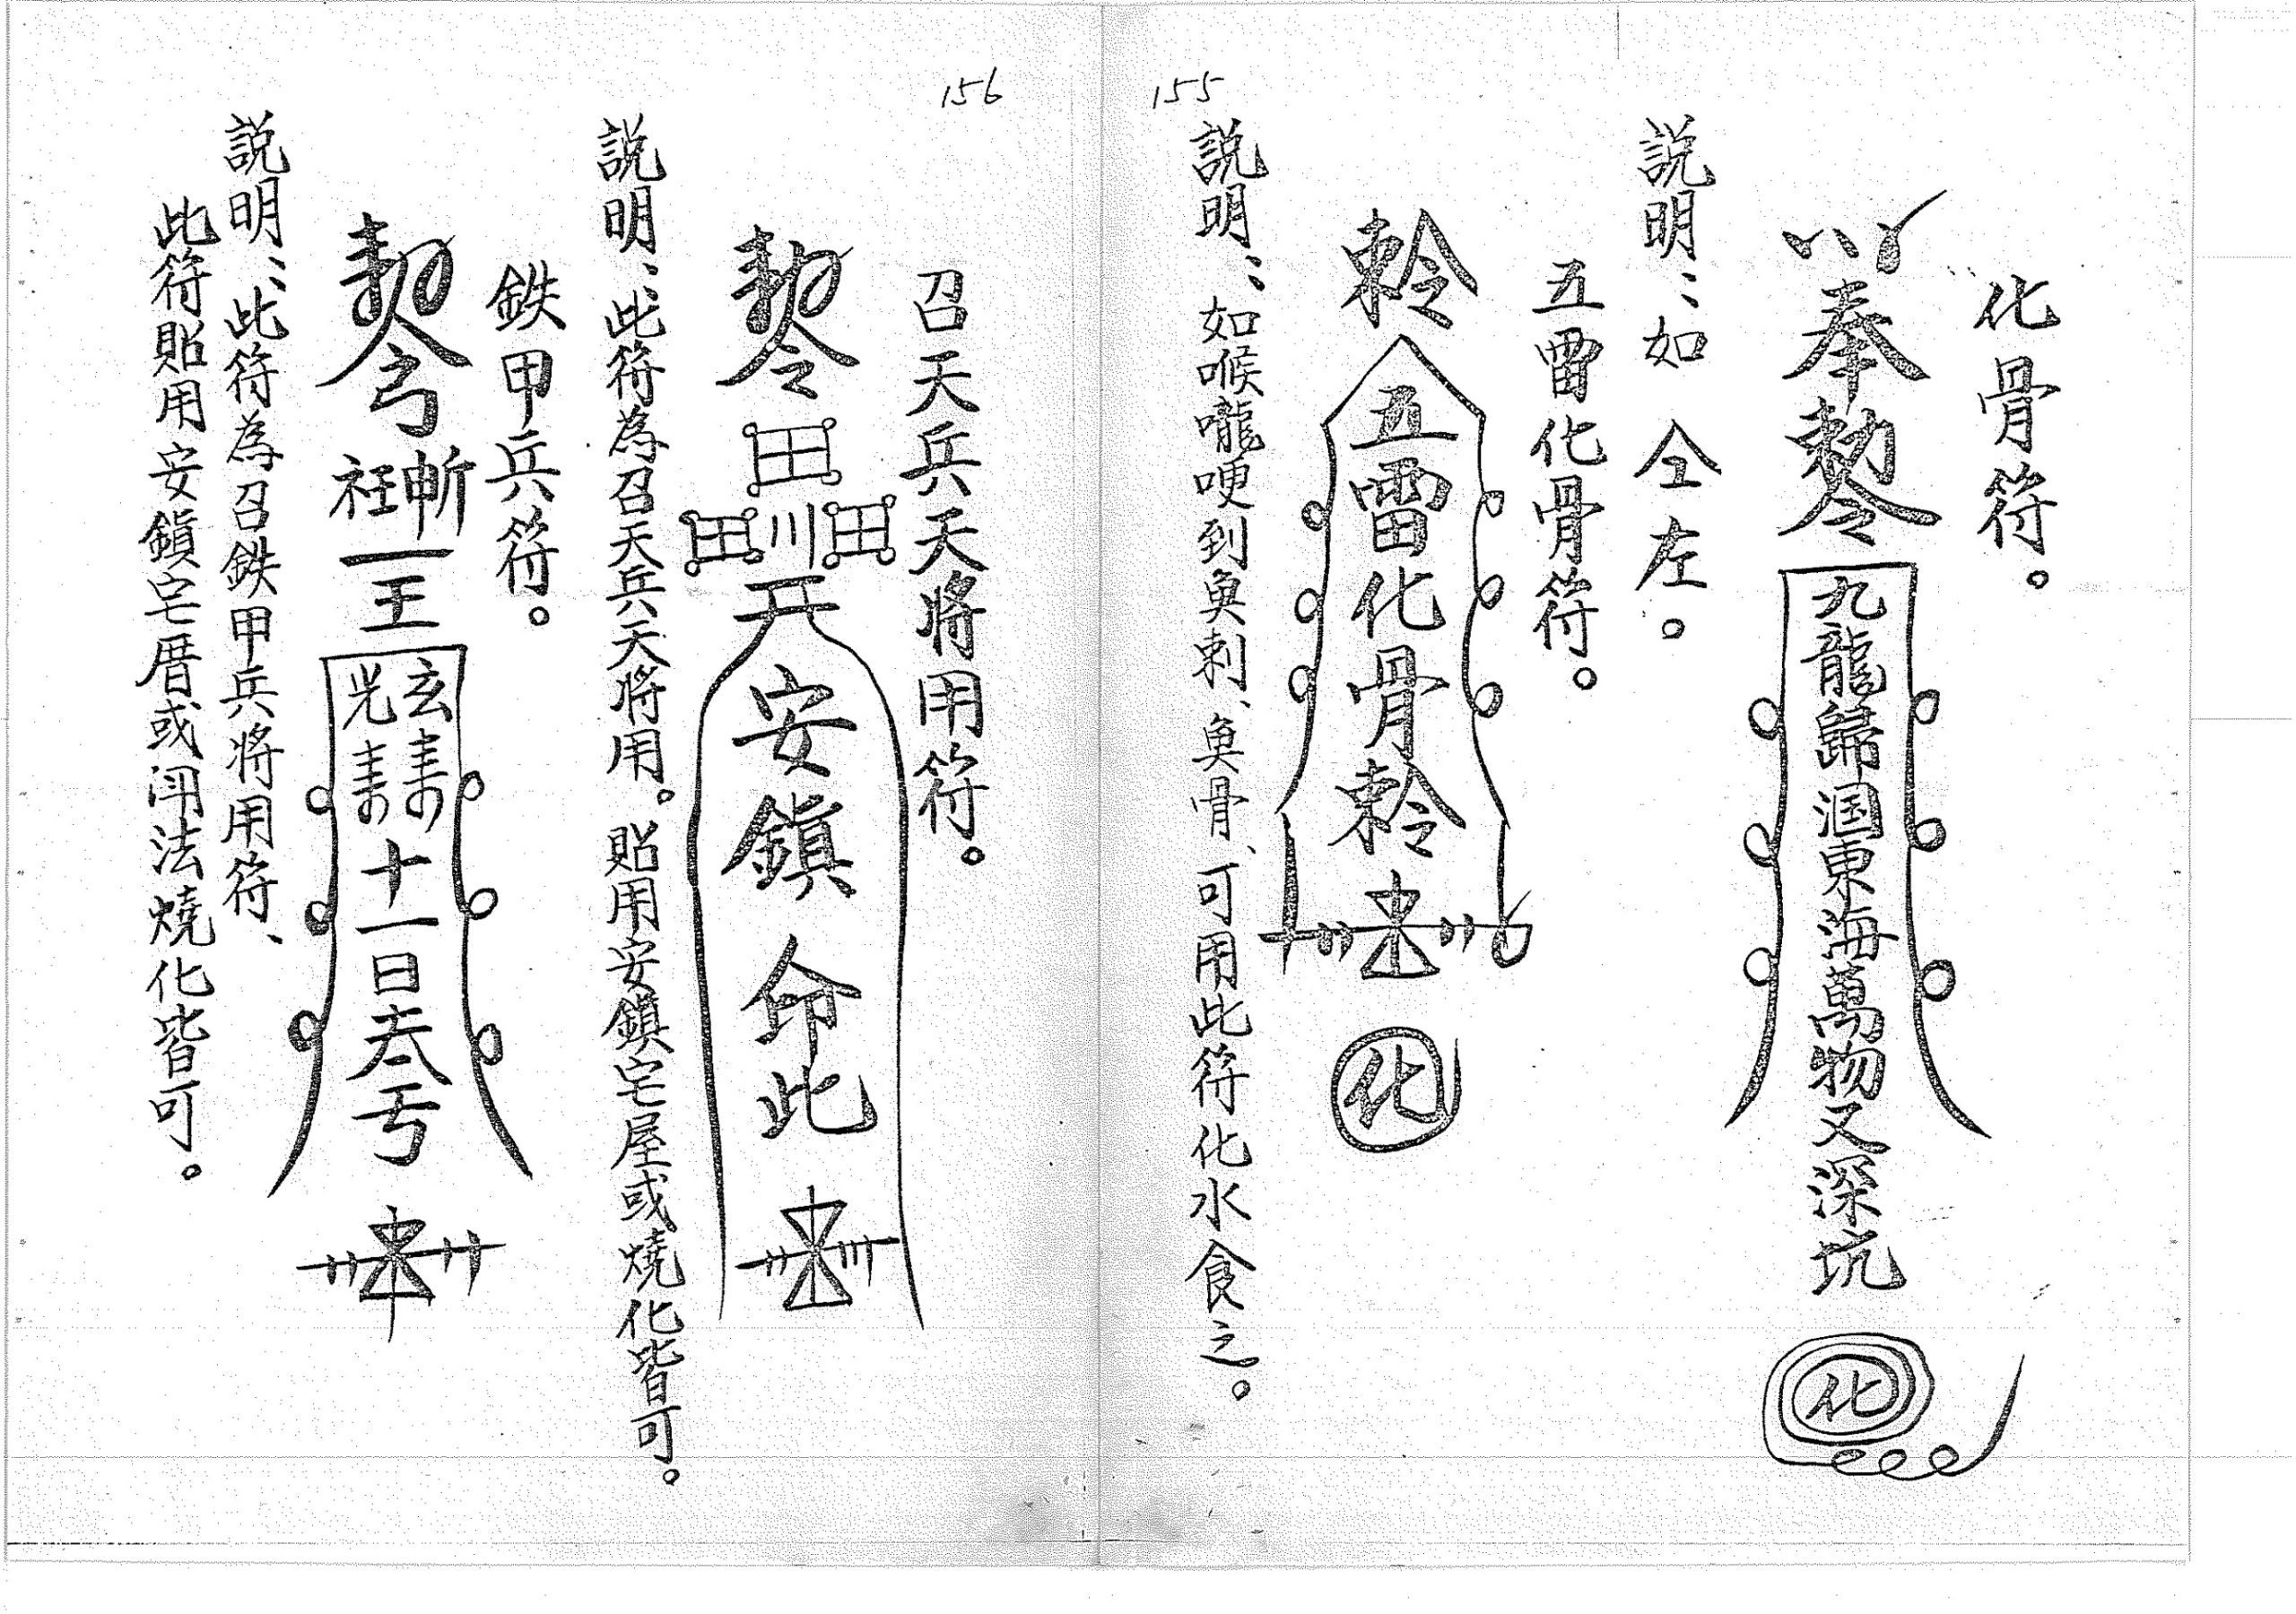 155
化骨符。
奉勅令 九龍歸洄東海萬物又深坑 化
説明：如仝左。
五雷化骨符。
勅令 五雷化骨 勅令 化
説明：如喉嚨哽到魚刺、魚骨、可用此符化水食之。
156
召天兵天將用符。
勅令 田 田 川 田 安鎮命此
説明：此符為召天兵天將用。貼用安鎮宅屋或燒化皆可。
鉄甲兵符。
勅令 王 玄光 十一日
説明：此符為召鉄甲兵將用符、
此符貼用安鎮宅厝或用法燒化皆可。